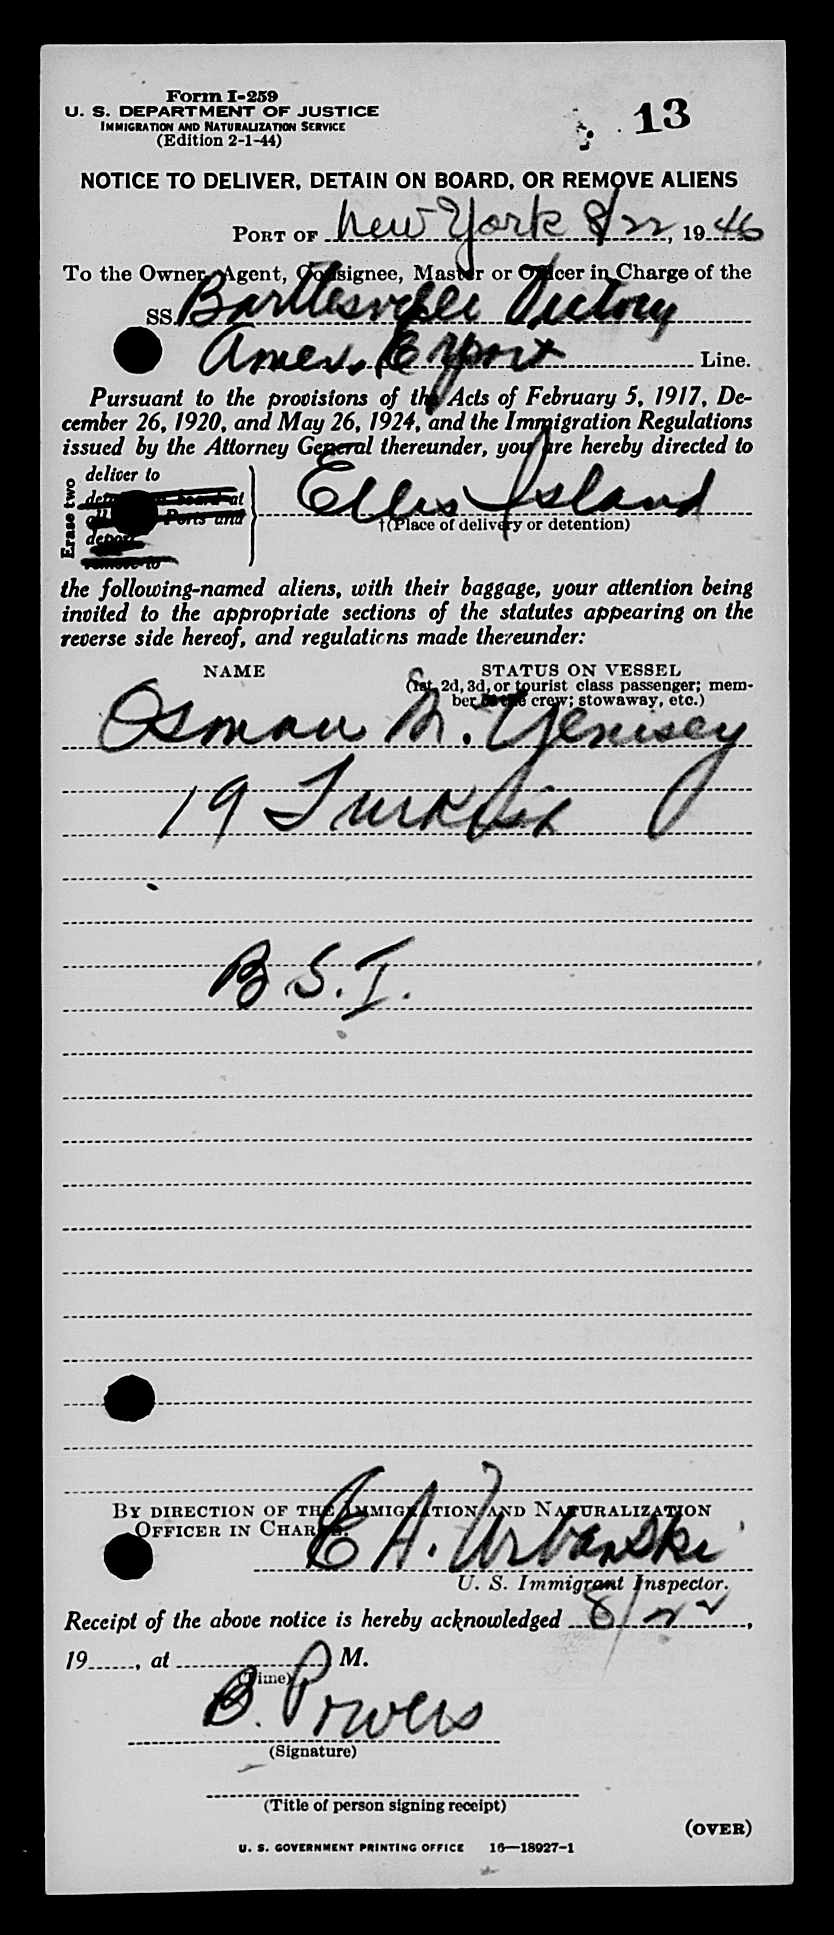 Form I-259
U. S. DEPARTMENT OF JUSTICE
IMMIGRATION AND NATURALIZATION SERVICE
(Edition 2-1-44)
13
NOTICE TO DELIVER, DETAIN ON BOARD, OR REMOVE ALIENS
PORT OF New York 8/22, 1946
To the Owner, Agent, Consignee, Master or Officer in Charge of the
SS. Bartlesville Victory
Amer. Export Line.
Pursuant to the provisions of the Acts of February 5, 1917, De-
cember 26, 1920, and May 26, 1924, and the Immigration Regulations
issued by the Attorney General thereunder, you are hereby directed to
Erase two
deliver to
detain on board at
Ports and
deport
remove to
Ellis Island
†(Place of delivery or detention)
the following-named aliens, with their baggage, your attention being
invited to the appropriate sections of the statutes appearing on the
reverse side hereof, and regulations made thereunder:
NAME STATUS ON VESSEL
(1st, 2d, 3d, or tourist class passenger; mem-
ber of the crew; stowaway, etc.)
Osman N. Yenisey
19 Turkish
B.S.I.
BY DIRECTION OF THE IMMIGRATION AND NATURALIZATION
OFFICER IN CHARGE.
E A. Urbanski
U. S. Immigrant Inspector.
Receipt of the above notice is hereby acknowledged 8/22,
19......, at M.
(Time)
B. Powers
(Signature)
(Title of person signing receipt)
(OVER)
U. S. GOVERNMENT PRINTING OFFICE 16—18927-1